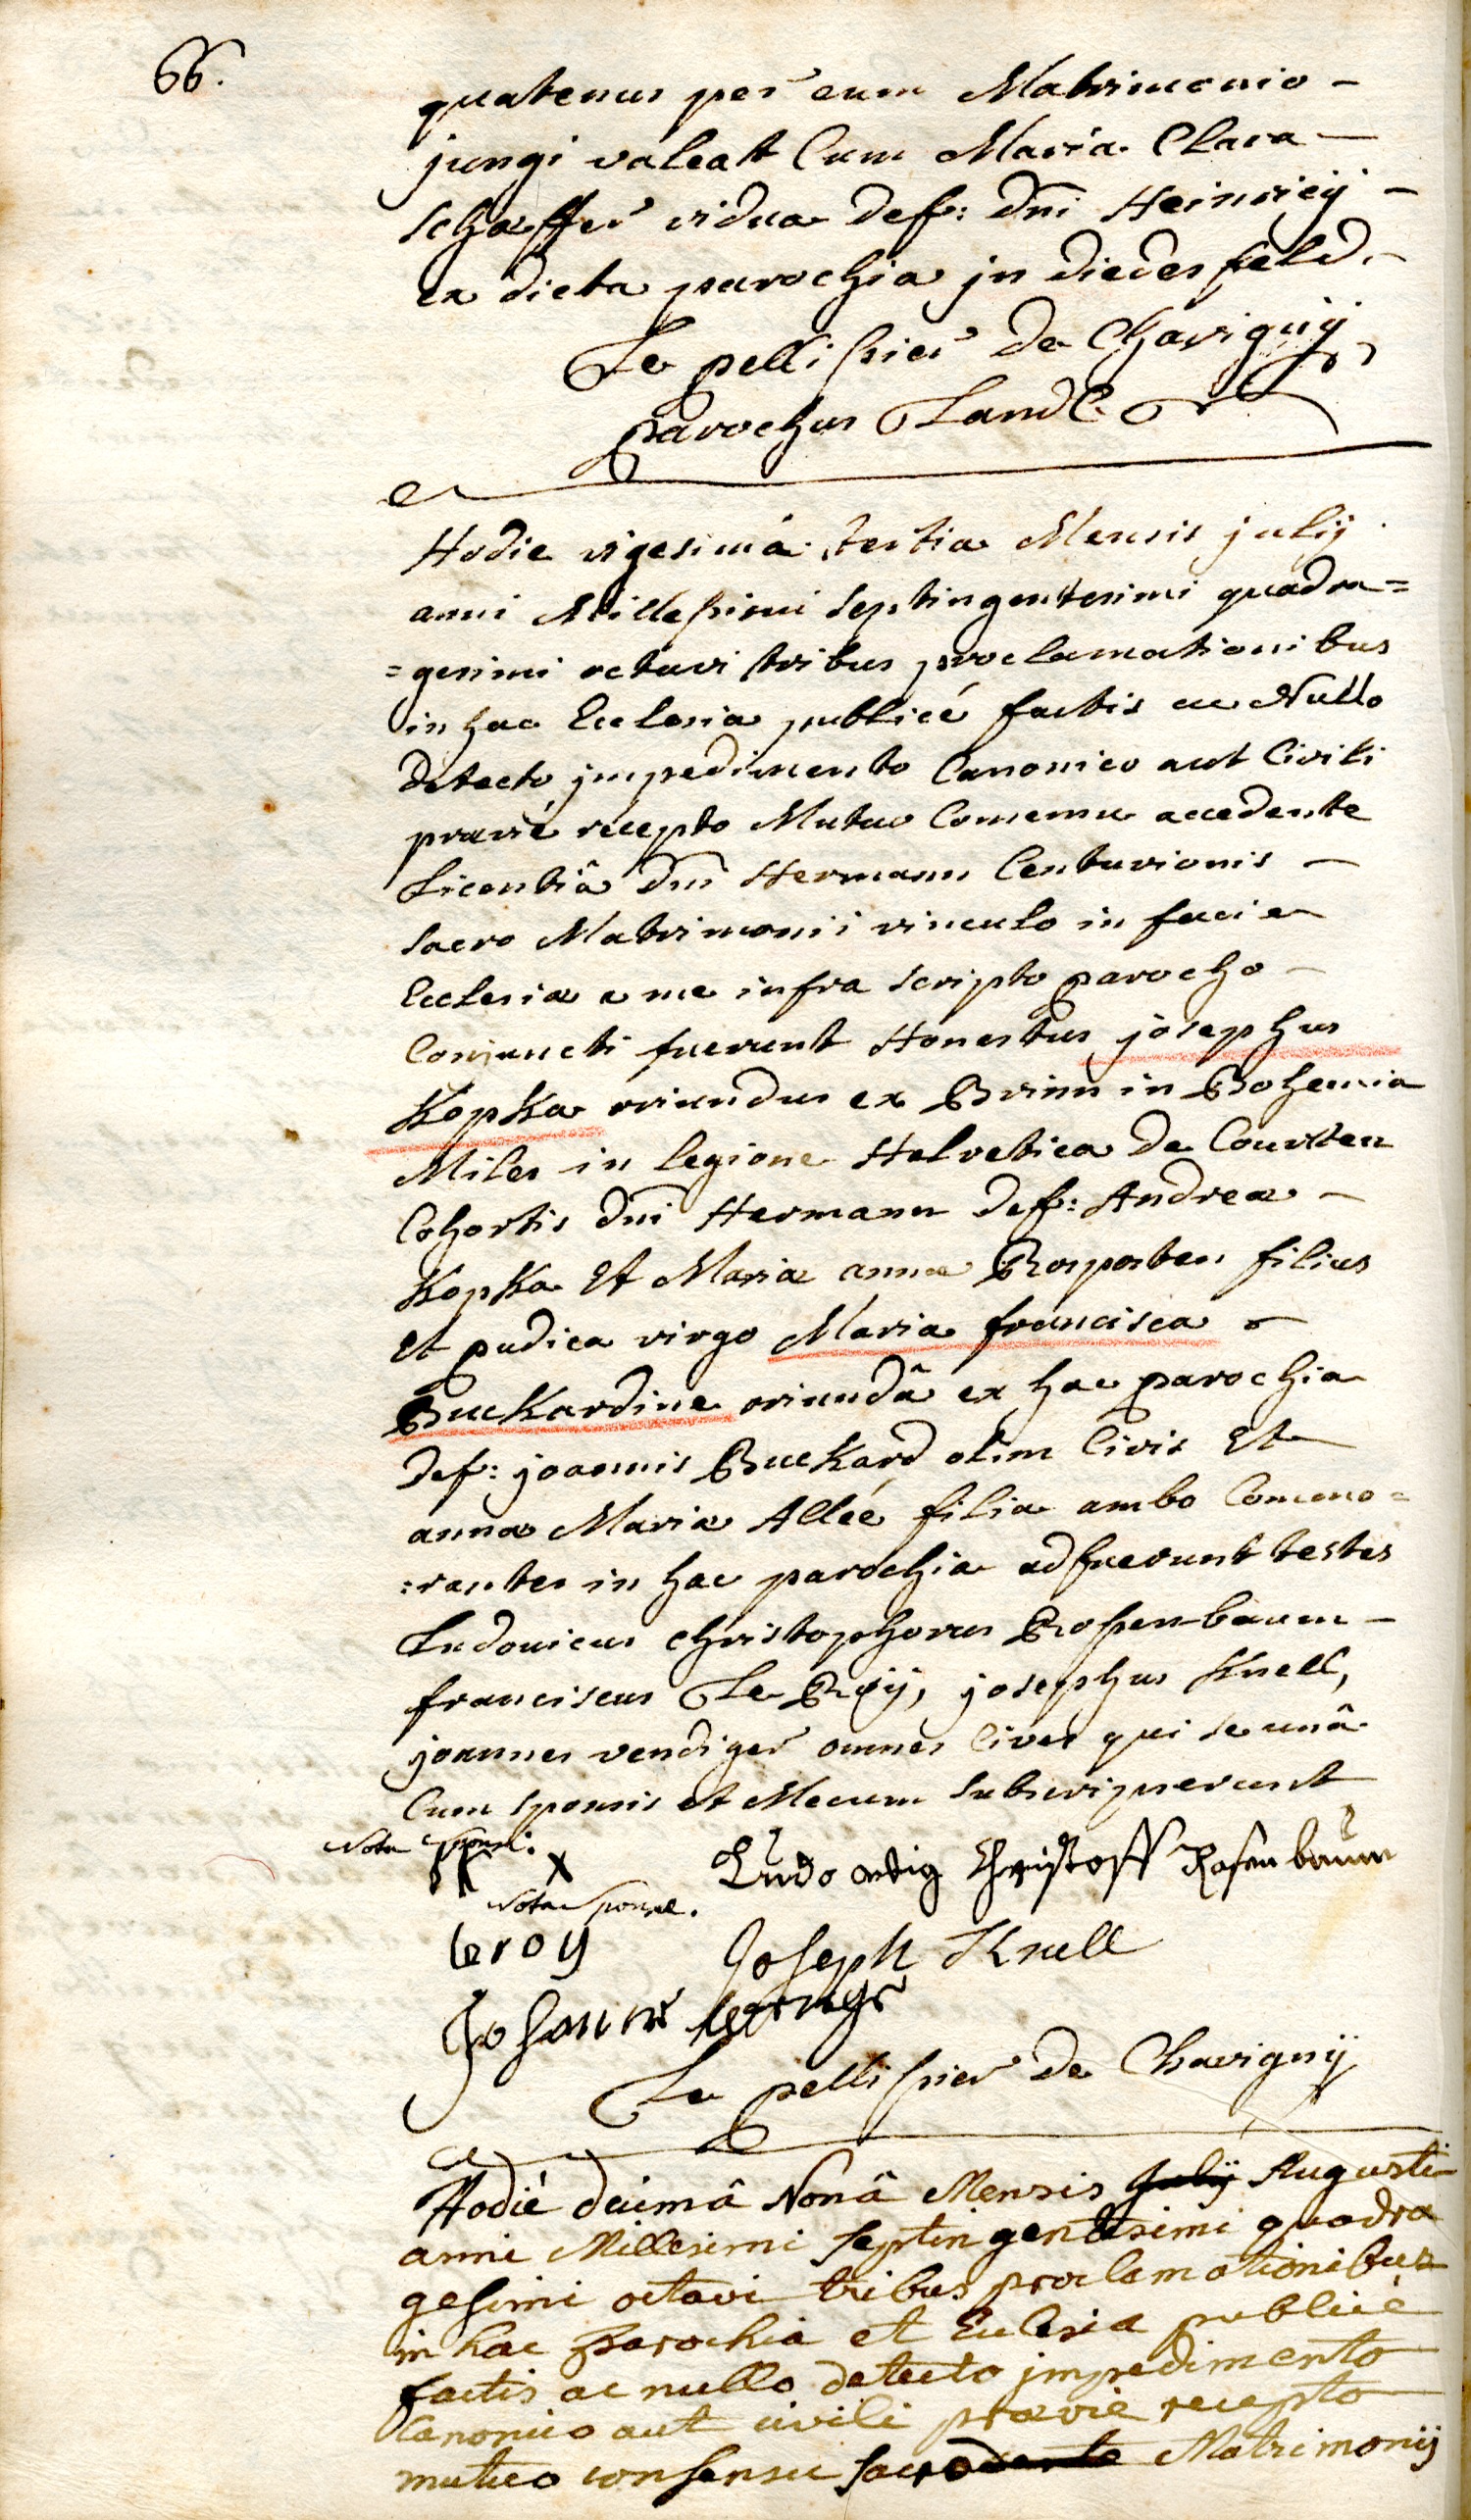 66.
quatenus per eum Matrimonio -
jungi valeat Cum Maria Clara -
schæffer vidua def: dni Heinricij -
ex dicta parochia jn diedesfeld. -
Le pellissier de Chavignÿ
parochus Land
Hodie vigesimâ tertia Mensis julij
anni Millessimi septingentesimi quadra=
=gesimi octavi tribus proclamationibus
in hac Ecclesia publicé factis ac Nullo
detecto jmpedimento Canonico aut Civili
prævié recepto Mutuo Consensu accedente
Licentiâ dni Hermann Centurionis -
sacro Matrimonii vinculo in facie
Ecclesiæ a me infra scripto parocho -
Coniuncti fuerunt Honestus josephus
Kopka oriundus ex Brinn in Bohemia
Miles in legione Helvetica de Courten
Cohortis dni Hermann def: Andreæ -
Kopka Et Mariæ annæ filius
Et pudica virgo Maria francisca
Buckardine oriundâ ex hac parochia
def: joannis Buckard olim Civis Et
anna Mariæ Allée filia ambo Commo=
:rantes in hac parochia adfuerunt testes
Ludovicus christophorus Rossenbaum -
franciscus Le Roÿ, josephus Knell,
joannes vendiger omnes Cives qui se unâ
Cum sponsis et Mecum subscripserunt
Nota sponsi.
X
Ludowig Christoff Rosenbaum
Nota sponsæ.
leroy Joseph Knell
Johannes
Le pellissier de Chavignÿ
Hodié decimâ Nonâ Mensis Julij Augusti
anni Millesimi septingentesimi quadra
gesimi octavi tribus proclamationibus
in hac Parochia et Ecclesia publicé
factis ac nullo detecto jmpedimento
Canonico aut civili prævie recepto
mutuo consensu sacro Matrimonij